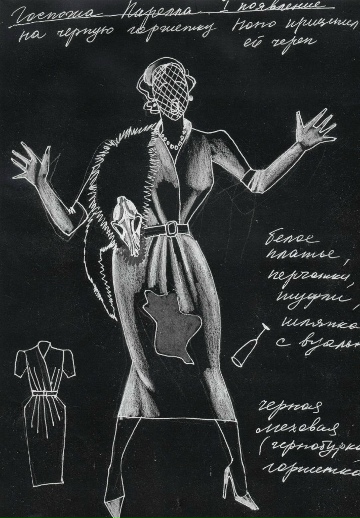 Госпожа Карелла I появление
на черную горжетку Коно пришпил
ей череп
белое
платье,
перчатки,
туфли,
шляпка
с вуалью
черная
меховая
(чернобурка
горжетка